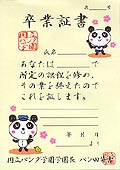 第　　号
卒業証書
氏名
あなたは　　　で
所定の課程を修め、
その業を終えたので
これを証します。
年　月　日
国立パンダ学園学園長　パン田